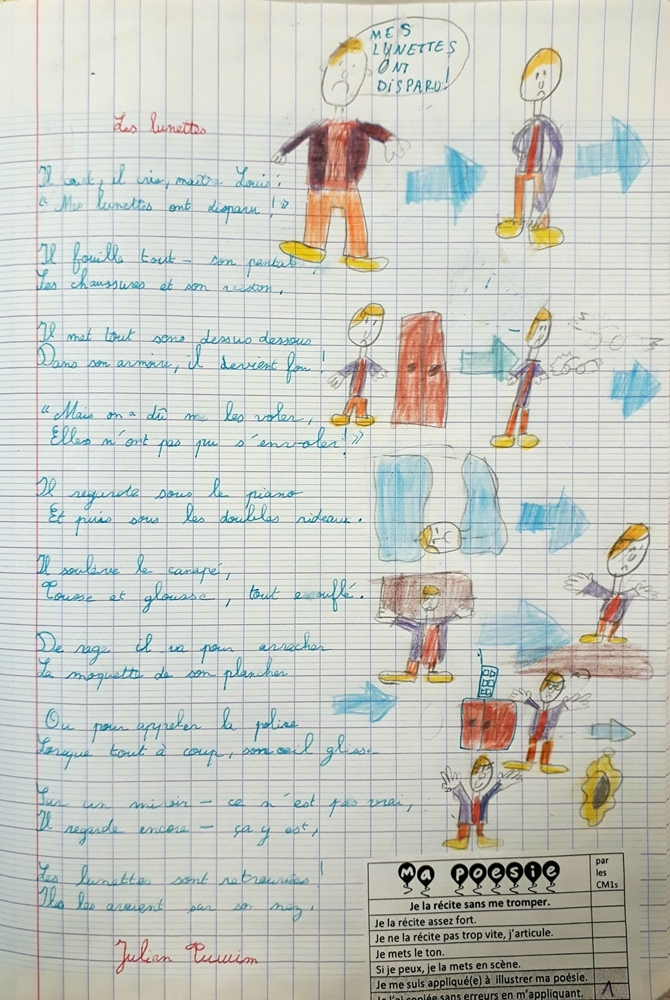 MES
LUNETTES
ONT
DISPARU!
Les lunettes
Il court, il crie, maître Louis :
"Mes lunettes ont disparu !"
Il fouille tout – son pantalon,
Les chaussures et son veston.
Il met tout sens dessus dessous
Dans son armoire, il devient fou !
"Mais on a dû me les voler,
Elles n'ont pas pu s'envoler !"
Il regarde sous le piano
Et puis sous les doubles rideaux.
Il soulève le canapé,
Tousse et glousse, tout essouflé.
De rage il va pour arracher
La moquette de son plancher
Ou pour appeler la police
Lorsque tout à coup, son œil glisse
Sur un miroir – ce n'est pas vrai,
Il regarde encore – ça y est,
Les lunettes sont retrouvées !
Ils les avaient sur son nez.
Julian Tuwim
Ma Poesie
par
les
CM1s
Je la récite sans me tromper.
Je la récite assez fort.
Je ne la récite pas trop vite, j'articule.
Je mets le ton.
Si je peux, je la mets en scène.
Je me suis appliqué(e) à illustrer ma poésie.
Je l'ai copiée sans erreurs en m'appliquant.
1